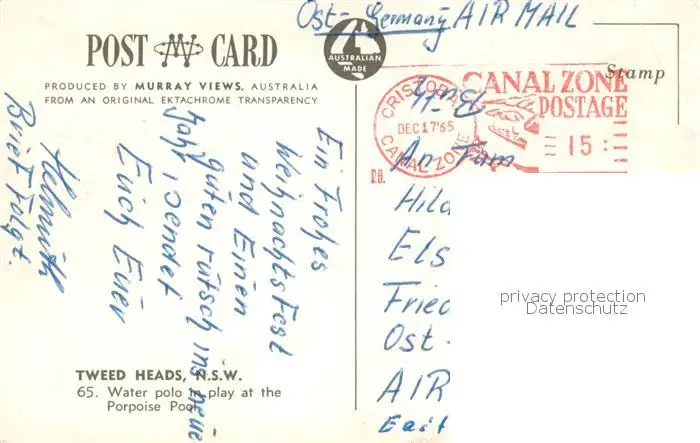 Ost-Germany AIR MAIL
POST CARD
AUSTRALIAN
MADE
PRODUCED BY MURRAY VIEWS, AUSTRALIA
FROM AN ORIGINAL EKTACHROME TRANSPARENCY
Stamp
CRISTOBAL
DEC 17'65
CANAL ZONE
CANAL ZONE
POSTAGE
15
P.B.
Ein Frohes
Weihnachtsfest
und Einen
guten rutsch ins neue
Jahr sendet
Euch Euer
Helmuth
Brief Folgt.
An Fam
Hild
Els
Fried
Ost-
AIR
East
privacy protection
Datenschutz
TWEED HEADS, N.S.W.
65. Water polo in play at the
Porpoise Pool